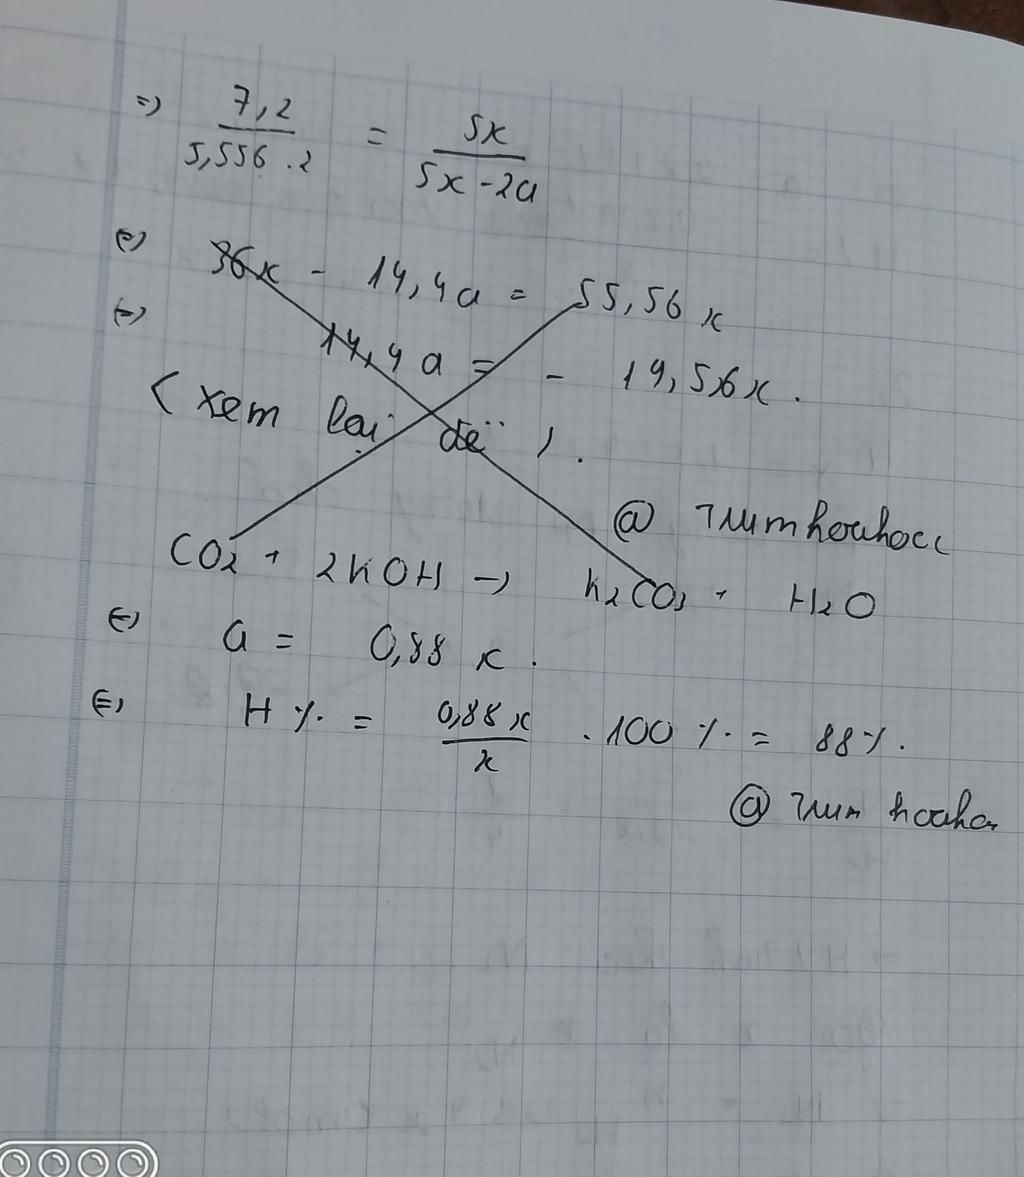 => 7,2 / 5,556 . 2 = 5x / 5x - 2a
(=) 36x - 14,4a = 55,56x
(=) 14,4a = - 19,56x.
( xem lại đề ).
@
CO2 + 2KOH -> K2CO3 + H2O
(=) a = 0,88x.
(=) H% = 0,88x / x . 100% = 88%.
@